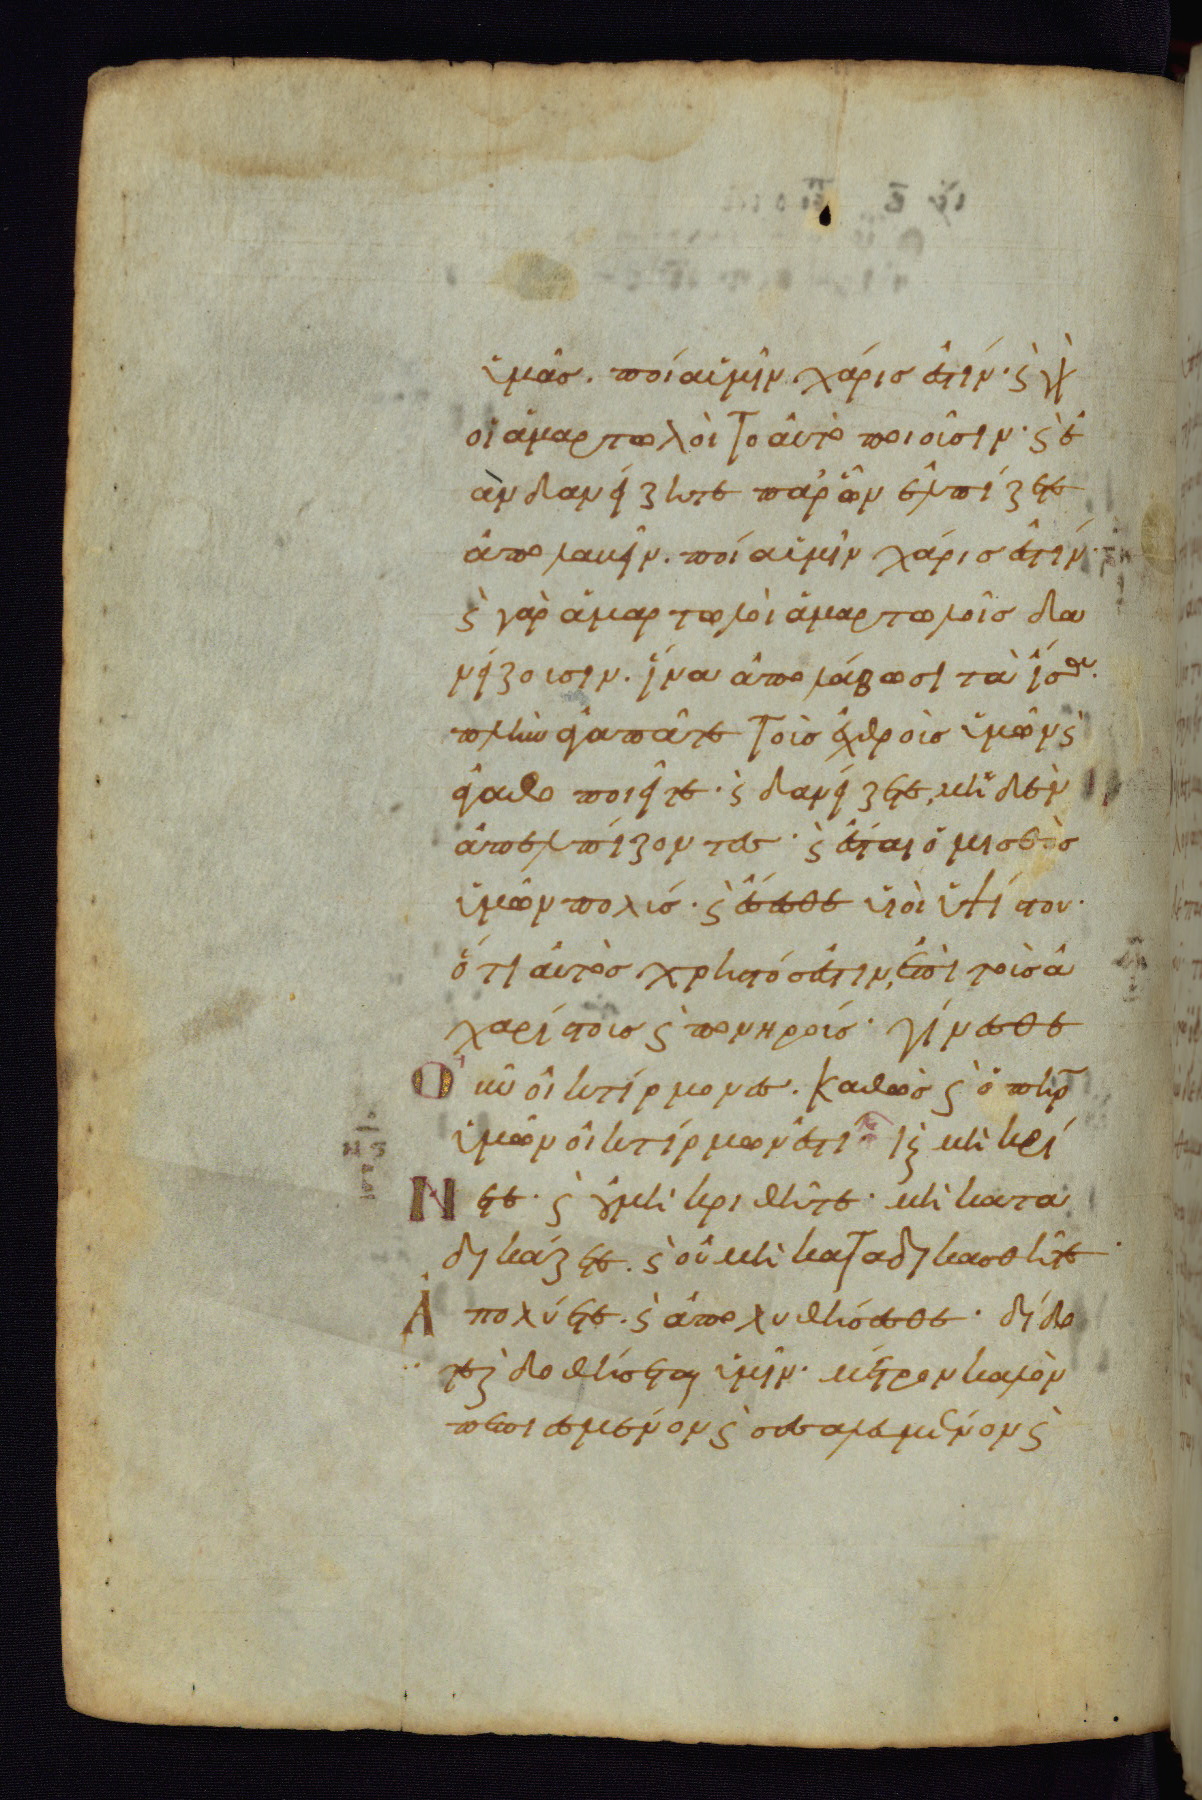 ὑμᾶσ. ποία ὑμῖν χάρισ ἐστίν· ϛ̀ γὰρ
οἱ ἁμαρτωλοὶ το ἀυτὸ ποιοῦσιν· ϛ̀ ἐ
ὰν δανείζητε παρ' ὧν ἐλπίζετε
ἀπολαβεῖν. ποία ὑμῖν χάρισ ἐστίν·
ϛ̀ γὰρ ἁμαρτωλοὶ ἁμαρτωλοῖσ δα
νείζουσιν. ἵνα ἀπολάβωσι τὰ ἴσα.
πλὴν ἀγαπᾶτε τοὺσ ἐχθροὺσ ὑμῶν ϛ̀
ἀγαθοποιεῖτε· ϛ̀ δανείζετε, μηδὲν
ἀπελπίζοντεσ· ϛ̀ ἔσται ὁ μισθὸσ
ὑμῶν πολύσ· ϛ̀ ἔσεσθε υἱοὶ ὑψίστου·
ὅτι ἀυτὸσ χρηστόσ ἐστιν, ἐπὶ τοὺσ ἀ
χαρίστουσ ϛ̀ πονηρούσ· γίνεσθε
Οὖν ὀικτίρμονεσ. καθὼσ ϛ̀ ὁ πηρ
ὑμῶν ὀικτίρμων ἐστί· ϛ̀ μὴ κρί
Νετε· ϛ̀ ὀυ μὴ κριθῆτε· μὴ κατα
δικάζετε. ϛ̀ οὐ μὴ καταδικασθῆτε
Ἀπολύετε. ϛ̀ ἀπολυθήσεσθε· δίδο
τε ϛ̀ δοθήσεται ὑμῖν· μέτρον καλὸν
πεπιεσμένον ϛ̀ σεσαλευμένον ϛ̀